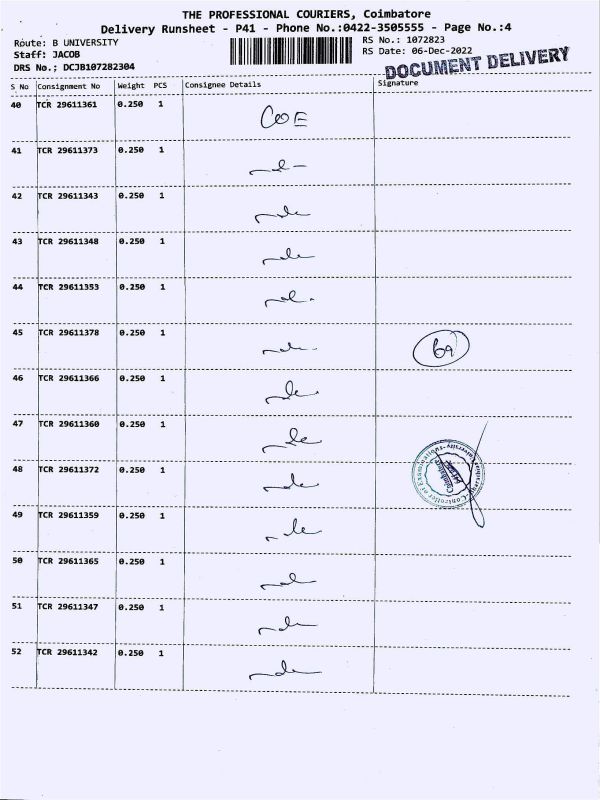 THE PROFESSIONAL COURIERS, Coimbatore
Delivery Runsheet - P41 - Phone No.:0422-3505555 - Page No.:4
Route: B UNIVERSITY
Staff: JACOB
DRS No.; DCJB107282304
RS No.: 1072823
RS Date: 06-Dec-2022
DOCUMENT DELIVERY
S No Consignment No Weight PCS Consignee Details Signature
40 TCR 29611361 0.250 1 COE
41 TCR 29611373 0.250 1
42 TCR 29611343 0.250 1
43 TCR 29611348 0.250 1
44 TCR 29611353 0.250 1
45 TCR 29611378 0.250 1
46 TCR 29611366 0.250 1
47 TCR 29611360 0.250 1
48 TCR 29611372 0.250 1
49 TCR 29611359 0.250 1
50 TCR 29611365 0.250 1
51 TCR 29611347 0.250 1
52 TCR 29611342 0.250 1